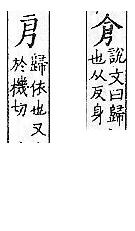 說文曰歸
也从反身
㐆
歸依也又
於機切